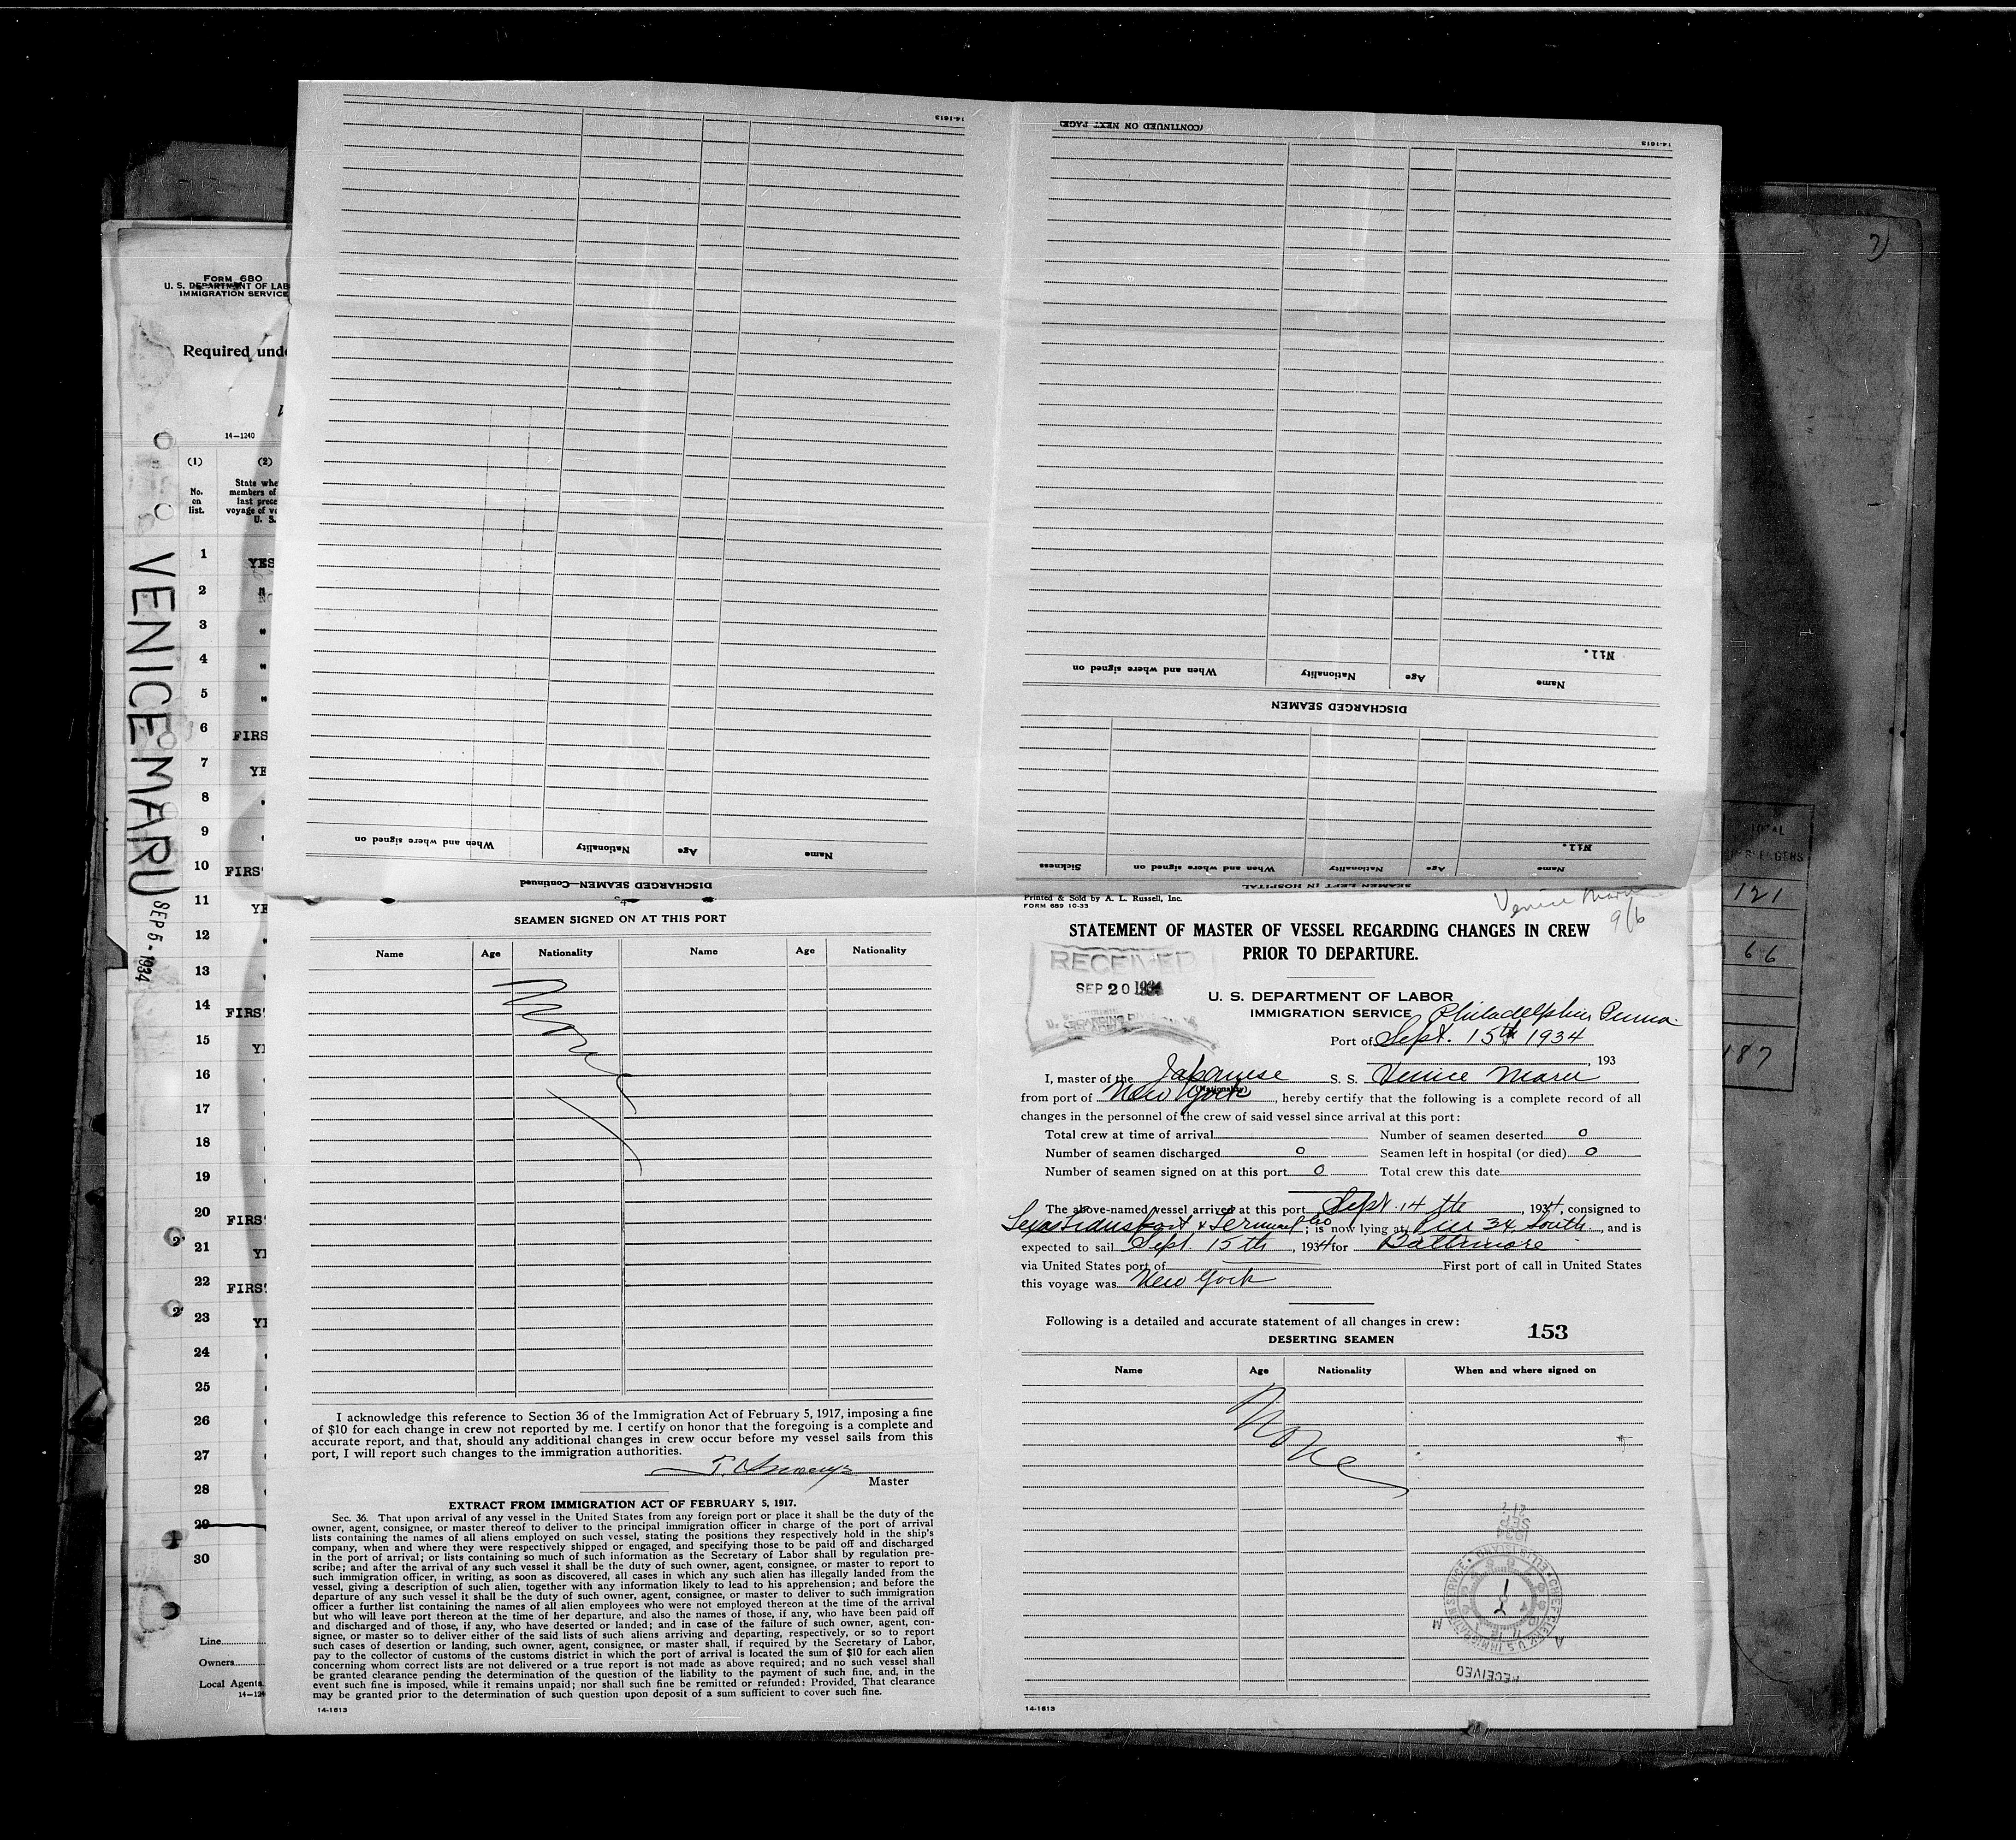 FORM 680
U. S. DEPARTMENT OF LAB
IMMIGRATION SERVICE
Required und
14-1240
(1)
(2)
No. on list.
State whe
members of
last prece
voyage of ve
U. S.
1 YES
2 "
3 "
4 "
5 "
6 FIRS
7 YE
8
9
10 FIRS
11 YE
12
13
14 FIRS
15 YE
16
17
18
19
20 FIRS
21 YE
22 FIRS
23 YE
24
25
26
27
28
29
30
Line
Owners
Local Agents
14-124
VENICE MARU
SEP 5 - 1934
14-1613
DISCHARGED SEAMEN—Continued
Name Age Nationality When and where signed on
14-1613
(CONTINUED ON NEXT PAGE)
SEAMEN LEFT IN HOSPITAL
Name Age Nationality When and where signed on Sickness
Nil.
DISCHARGED SEAMEN
Name Age Nationality When and where signed on
Nil.
SEAMEN SIGNED ON AT THIS PORT
Name Age Nationality Name Age Nationality
None
I acknowledge this reference to Section 36 of the Immigration Act of February 5, 1917, imposing a fine
of $10 for each change in crew not reported by me. I certify on honor that the foregoing is a complete and
accurate report, and that, should any additional changes in crew occur before my vessel sails from this
port, I will report such changes to the immigration authorities.
Master
EXTRACT FROM IMMIGRATION ACT OF FEBRUARY 5, 1917.
Sec. 36. That upon arrival of any vessel in the United States from any foreign port or place it shall be the duty of the
owner, agent, consignee, or master thereof to deliver to the principal immigration officer in charge of the port of arrival
lists containing the names of all aliens employed on such vessel, stating the positions they respectively hold in the ship's
company, when and where they were respectively shipped or engaged, and specifying those to be paid off and discharged
in the port of arrival; or lists containing so much of such information as the Secretary of Labor shall by regulation pre-
scribe; and after the arrival of any such vessel it shall be the duty of such owner, agent, consignee, or master to report to
such immigration officer, in writing, as soon as discovered, all cases in which any such alien has illegally landed from the
vessel, giving a description of such alien, together with any information likely to lead to his apprehension; and before the
departure of any such vessel it shall be the duty of such owner, agent, consignee, or master to deliver to such immigration
officer a further list containing the names of all alien employees who were not employed thereon at the time of the arrival
but who will leave port thereon at the time of her departure, and also the names of those, if any, who have been paid off
and discharged and of those, if any, who have deserted or landed; and in case of the failure of such owner, agent, con-
signee, or master so to deliver either of the said lists of such aliens arriving and departing, respectively, or so to report
such cases of desertion or landing, such owner, agent, consignee, or master shall, if required by the Secretary of Labor,
pay to the collector of customs of the customs district in which the port of arrival is located the sum of $10 for each alien
concerning whom correct lists are not delivered or a true report is not made as above required; and no such vessel shall
be granted clearance pending the determination of the question of the liability to the payment of such fine, and, in the
event such fine is imposed, while it remains unpaid; nor shall such fine be remitted or refunded: Provided, That clearance
may be granted prior to the determination of such question upon deposit of a sum sufficient to cover such fine.
14-1613
Printed & Sold by A. L. Russell, Inc.
FORM 689 10-33
Venice Maru
9/6
STATEMENT OF MASTER OF VESSEL REGARDING CHANGES IN CREW
PRIOR TO DEPARTURE.
RECEIVED
SEP 20 1934
U. S. DEPARTMENT OF LABOR
IMMIGRATION SERVICE
Philadelphia Penna.
Port of Sept. 15th 1934
, 193
I, master of the Japanese S. S. Venice Maru
(Nationality)
from port of New York, hereby certify that the following is a complete record of all
changes in the personnel of the crew of said vessel since arrival at this port:
Total crew at time of arrival Number of seamen deserted 0
Number of seamen discharged 0 Seamen left in hospital (or died) 0
Number of seamen signed on at this port 0 Total crew this date
The above-named vessel arrived at this port Sept. 14th, 1934, consigned to
Texas Transport & Terminal Co; is now lying at Pier 34 South, and is
expected to sail Sept. 15th, 1934 for Baltimore
via United States port of First port of call in United States
this voyage was New York
Following is a detailed and accurate statement of all changes in crew:
153
DESERTING SEAMEN
Name Age Nationality When and where signed on
None
1934
SEP
21
CHIEF CLERK U.S. IMMIGRATION SERVICE • ELLIS ISLAND •
A M
RECEIVED
14-1613
TOTAL
PASSENGERS
121
66
187